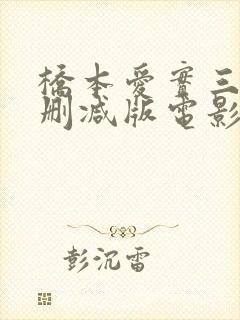 橋本愛實三
刪減版電影
彭沉雷